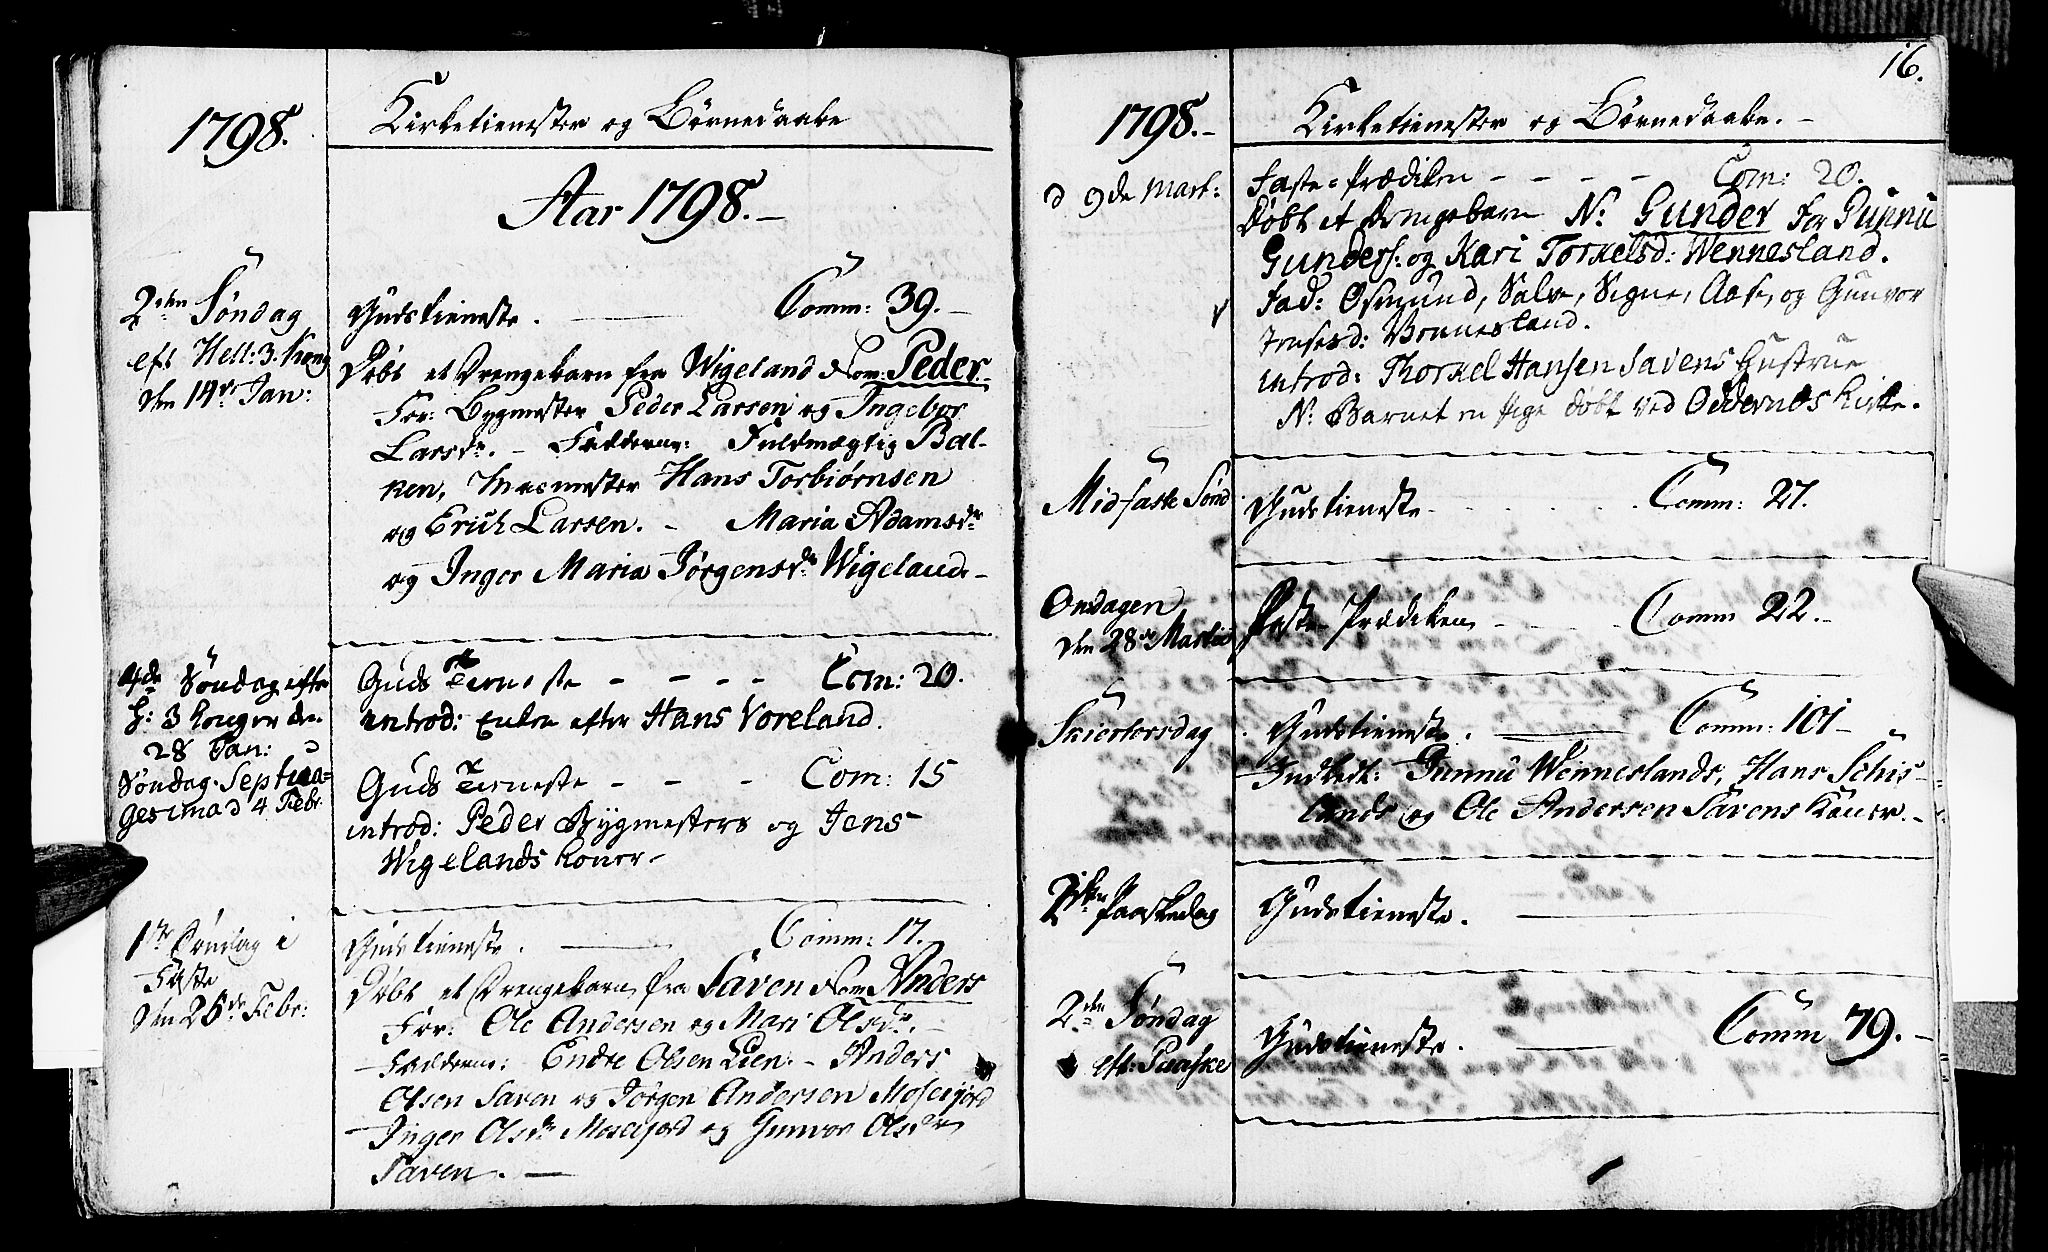 1798.
Kirketienester og Børnedaabe
Aar 1798.-
2den Søndag
eft Hell: 3. Kong
den 14de Jan:
Gudstieneste. Comm: 39.
Døbt et Drengebarn fra Wigeland Nom: Peder.
For: Bygmester Peder Larsen og Ingebor
Larsdr. - Fadderne: Fuldmægtig Bal-
ken, Huusmester Hans Torbiørnsen
og Erich Larsen. - Maria Adamsdr
og Inger Maria Jørgensdr Wigeland-
4de Søndag efter
H: 3 konger den
28 Jan:
Guds Tieneste - - - - Com: 20.
introd: Enken efter Hans Voreland.
Søndag Septua=
gesima d 4 Febr
Guds Tieneste - - - Com: 15
introd: Peder Bygmesters og Jens
Wigelands koner-
1ste Søndag i
Faste
den 25de Febr:
Gudstieneste. Comm: 17.
Døbt et Drengebarn fra Saven Nom Anders
For: Ole Andersen og Mari Olsdr.
Fadderne: Endre Olsen Lien. - Anders
Olsen Saven og Jørgen Andersen Moseijord
Inger Olsdr Moseijord og Gunvor Olsdr
Saven. -
16.
1798.-
Kirketienester og Børnedaabe. -
d 9de Mart:
Faste=Prædiken - - - - Com: 20.
Døbt et Drengebarn N: Gunder for Gunnu
Gunders: og Kari Torkelsd: Wennesland.
Fad: Osmund, Salve, Signe, Aase, og Gunvor
Vonnesland.
introd: Thorkel Hansen Savens Hustrue
N: Barnet en Pige døbt ved Oddernes kirke.
Midfaste Sønd
Gudstieneste. Comm: 27.
Onsdagen
den 28de Martii
Faste-Prædiken, - Comm 22.-
Skiertorsdag
Gudstieneste. Comm: 101-
Indledt: Gunnu Wenneslands, Hans Schis-
lands og Ole Andersen Savens Koner.-
2den Paaskedag
Gudstieneste.
2den Søndag
eft: Paaske
Gudstieneste. Comm 79.-